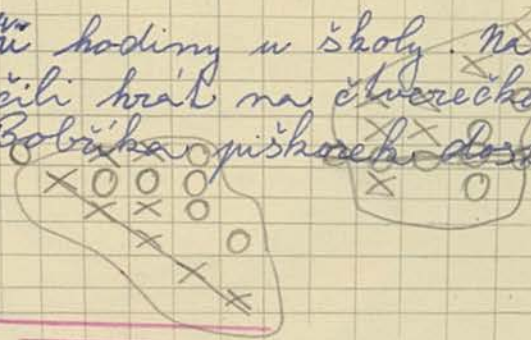 hodiny u školy. Na
čili hrát na čtverečko
Bobříka piškorek dosá